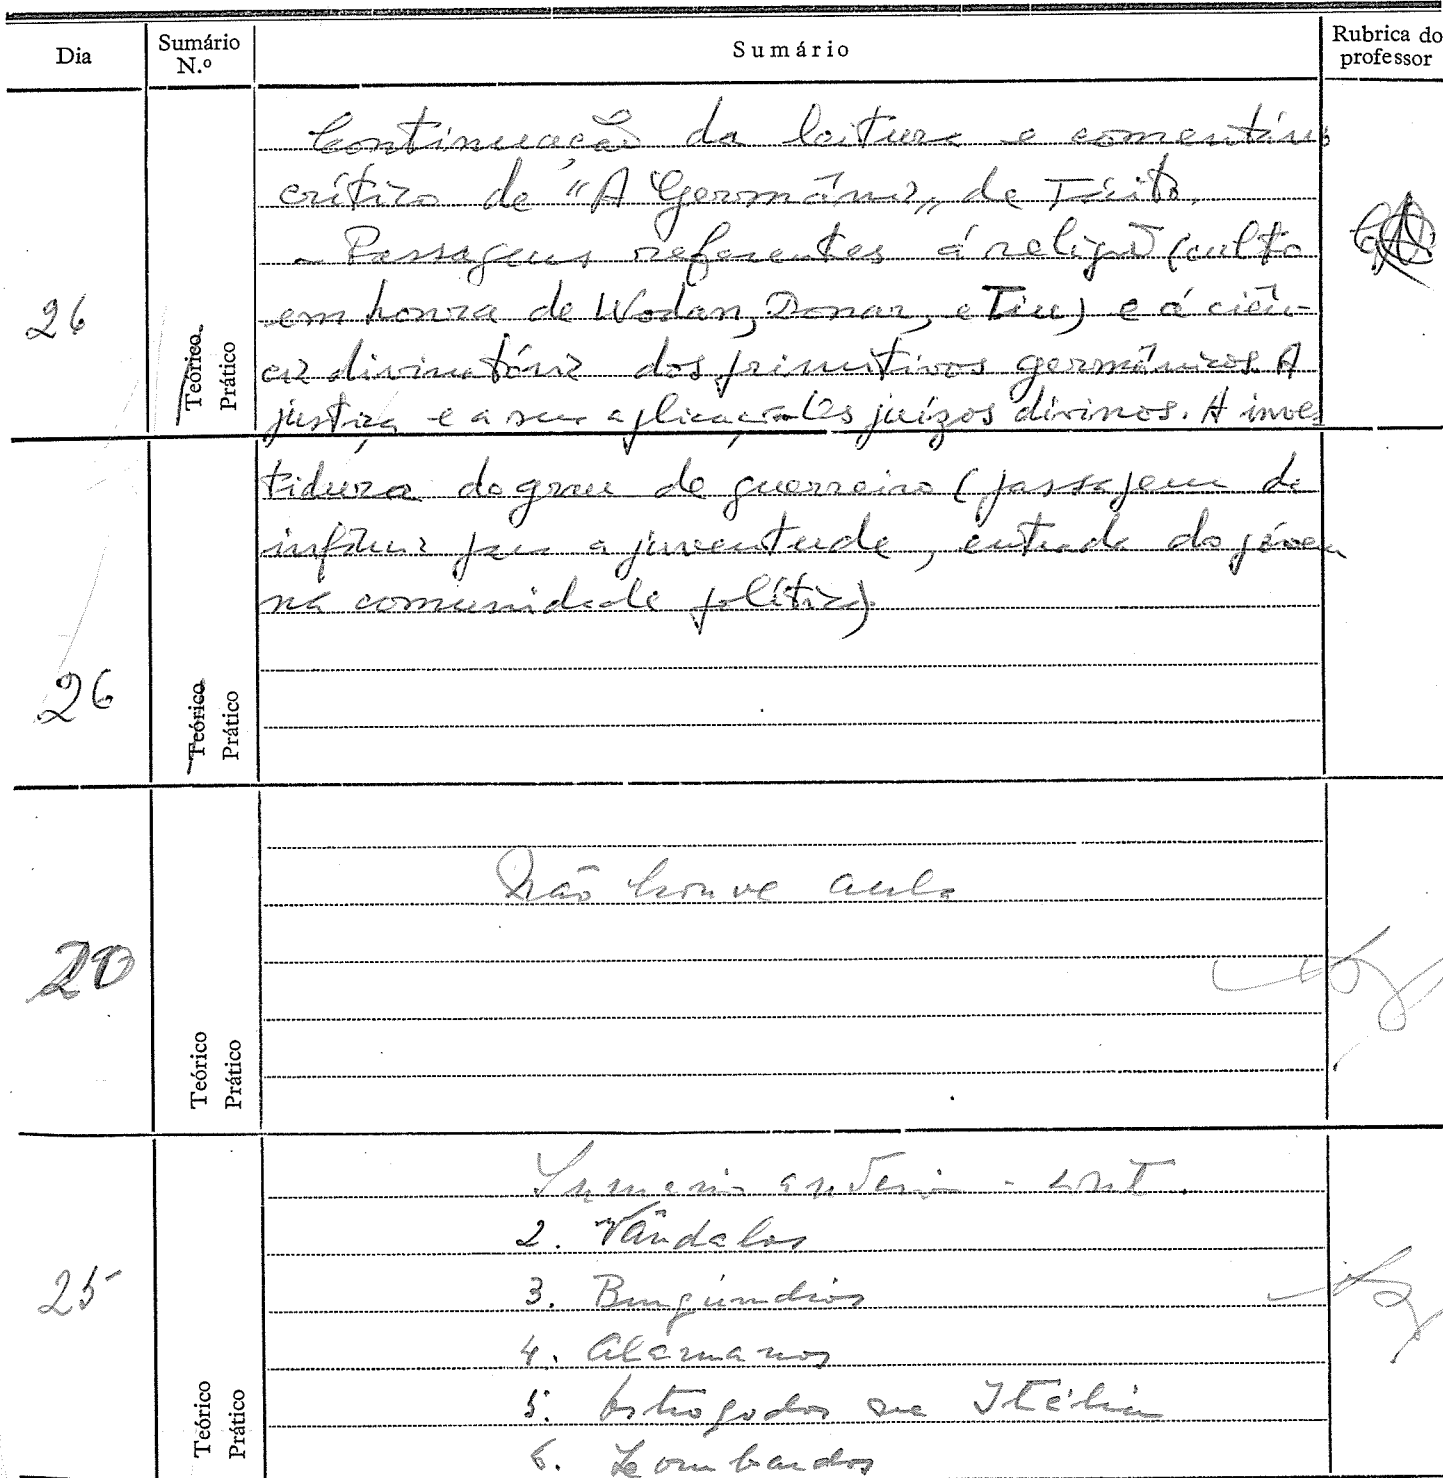 Dia
Sumário N.º
Sumário
Rubrica do professor
Continuação da leitura e comentário
crítico de "A Germânia" de Tácito.
- Passagens referentes á religião (culto
em honra de Wodan, Donar, e Tiu) e á ciên-
cia divinatória dos primitivos germânicos. A
justiça e a sua aplicação. Os juízos divinos. A inves-
26
Teórico
Prático
tidura do grau de guerreiro (passagem da
infância para a juventude, entrada do jóvem
na comunidade política).
26
Teórico
Prático
Não houve aula
20
Teórico
Prático
Sumário anterior - cont.
2. Vândalos
3. Burgúndios
25
4. Alamanos
5. Ostrogodos na Itália
6. Lombardos
Teórico
Prático